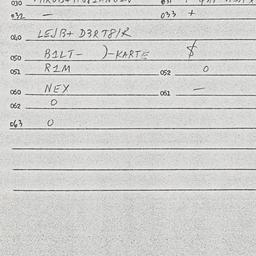 030
032 — 033 +
040 LEJB+ D3RT8/R
050 B1LT- )-KARTE $
051 R1M 052 0
060 NEX 061 —
062 0
063 0